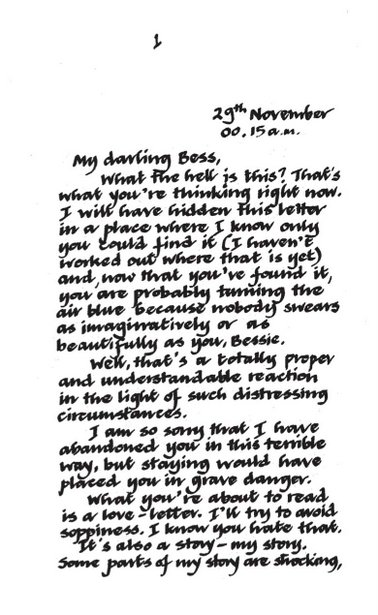 1
29th November
00.15 a.m.
My darling Bess,
What the hell is this? That's
what you're thinking right now.
I will have hidden this letter
in a place where I know only
you could find it (I haven't
worked out where that is yet)
and, now that you've found it,
you are probably turning the
air blue because nobody swears
as imaginatively or as
beautifully as you, Bessie.
Well, that's a totally proper
and understandable reaction
in the light of such distressing
circumstances.
I am so sorry that I have
abandoned you in this terrible
way, but staying would have
placed you in grave danger.
What you're about to read
is a love-letter. I'll try to avoid
soppiness. I know you hate that.
It's also a story - my story.
Some parts of my story are shocking,